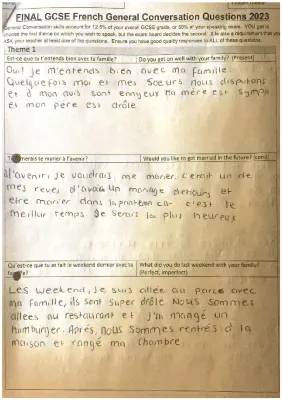 FINAL GCSE French General Conversation Questions 2023
General Conversation skills account for 12.5% of your overall GCSE grade, or 50% of your speaking exam. YOU get to
choose the first theme on which you wish to speak, but the exam board decides the second. It is also a requirement that you
ASK your teacher at least one of the questions. Ensure you have good quality responses to ALL of these questions.
Theme 1
Est-ce que tu t'entends bien avec ta famille? Do you get on well with your family? (Present)
Oui! Je m'entends bien avec ma famille.
Quelquefois moi et mes soeurs nous disputons
et à mon avis sont ennyeux ma mère est sympa
et mon père est drôle
merais te marier à l'avenir? Would you like to get married in the future? (cond)
À l'avenir, je voudrais me marier. C'erait un de
mes reves d'avoir un mariage dehours et
etre marier dans la printemp car c'est le
meillur temps Je serais la plus heureux
Qu'est-ce que tu as fait le weekend dernier avec ta What did you do last weekend with your family?
(Perfect, imperfect)
Les weekend, je suis allée au parc avec
ma famille, ils sont super drôle Nous sommes
allees au restaurant et j'ai mangé un
hamburger. Après, nous sommes rentrés à la
maison et rangé ma chambre.